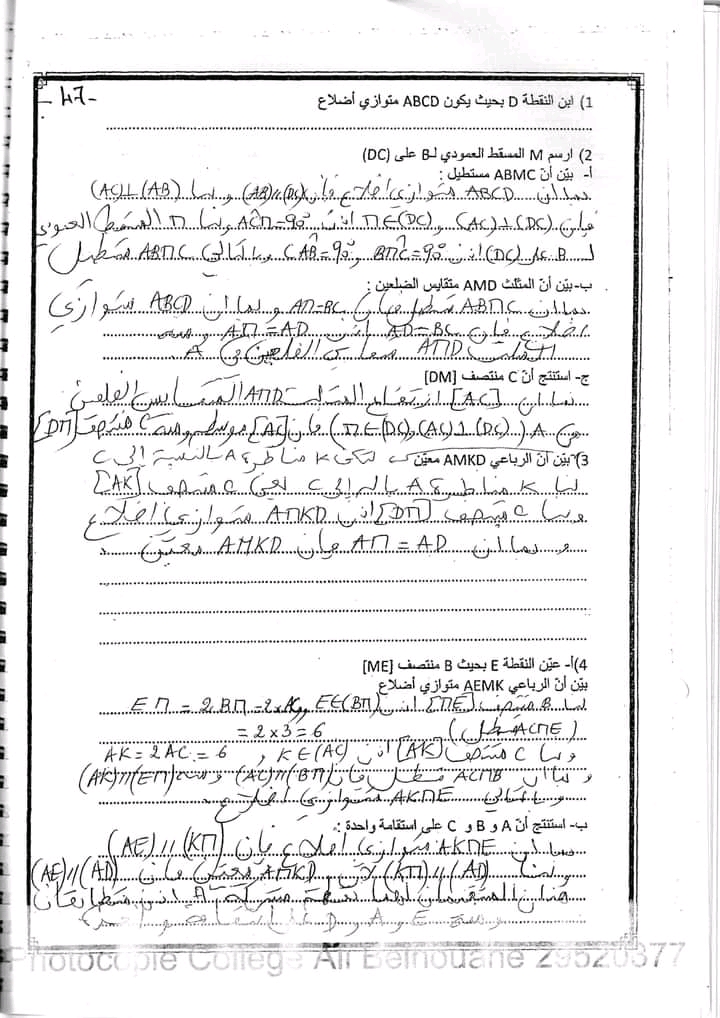 -47-
1) ابن النقطة D بحيث يكون ABCD متوازي أضلاع
2) ارسم M المسقط العمودي لـ B على (DC)
أ- بيّن أنّ ABMC مستطيل :
بما أن ABCD متوازي أضلاع فإن (AB)//(DC) و بما (AC)⊥(AB)
فإن (AC)⊥(DC) و M∈(DC) إذن AĈM=90° و بما M المسقط العمودي
لـ B على (DC) إذن BM̂C=90° و CÂB=90° و بالتالي ABMC مستطيل
ب- بيّن أنّ المثلث AMD متقايس الضلعين :
بما أن ABMC مستطيل فإن AM=BC و بما أن ABCD متوازي
أضلاع فإن AD=BC إذن AM=AD و منه
المثلث AMD متقايس الضلعين في A
ج- استنتج أنّ C منتصف [DM]
بما أن [AC] ارتفاع المثلث AMD المتقايس الضلعين
في A (M∈(DC) و (AC)⊥(DC)) فإن [AC] موسط و منه C منتصف [DM]
3) لتكن K مناظرة A بالنسبة إلى C بيّن أنّ الرباعي AMKD معيّن
لنا K مناظرة A بال إلى C يعني C منتصف [AK]
و بما C منتصف [DM] إذن AMKD متوازي أضلاع
و بما أن AM = AD فإن AMKD معيّن
4)أ- عيّن النقطة E بحيث B منتصف [ME]
بيّن أنّ الرباعي AEMK متوازي أضلاع
لنا B منتصف [ME] إذن E∈(BM) و EM = 2BM = 2×AC
= 2×3 = 6 (ACME مستطيل)
و بما C منتصف [AK] إذن K∈(AC) , AK = 2AC = 6
و بما أن ACMB مستطيل فإن (AC)//(BM) و منه (AK)//(EM)
و بالتالي AKME متوازي أضلاع
ب- استنتج أنّ A و B و C على استقامة واحدة :
بما أن AKME متوازي أضلاع فإن (AE)//(KM)
و بما AMKD معيّن فإن (KM)//(AD) إذن (AE)//(AD)
هذان المستقيمان لهما نقطة مشتركة A إذن متطابقان
و منه E و A و D على استقامة واحدة
Photocopie College Ali Belhouane 29520377